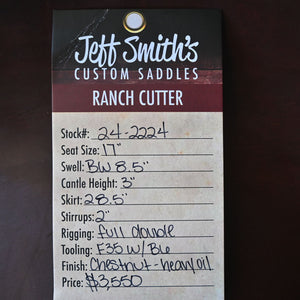 Jeff Smith's
CUSTOM SADDLES
RANCH CUTTER
Stock#: 24-2224
Seat Size: 17"
Swell: BW 8.5"
Cantle Height: 3"
Skirt: 28.5"
Stirrups: 2"
Rigging: full double
Tooling: F35 w/ Ble
Finish: Chestnut-heavy oil
Price: $3,550